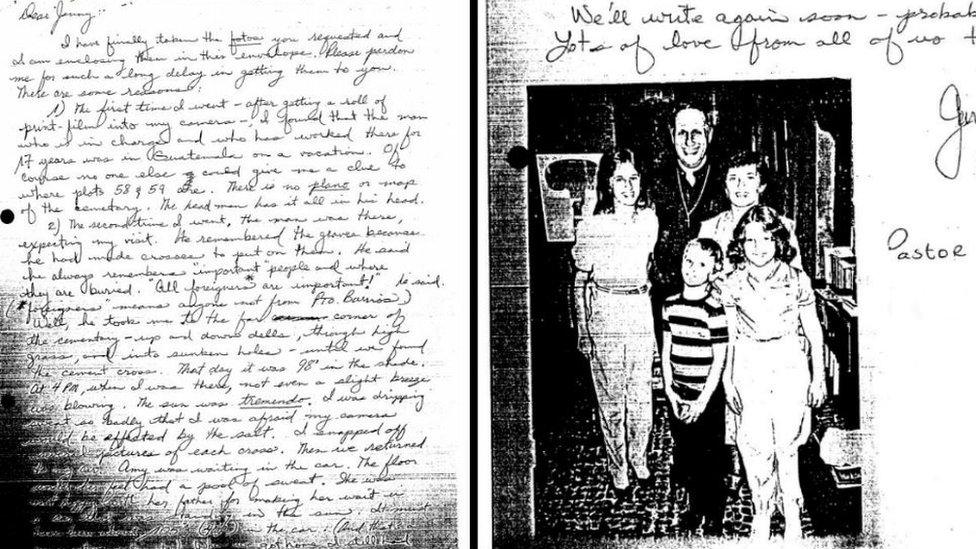 Dear Jenny:
I have finally taken the fotos you requested and
I am enclosing them in this envelope. Please pardon
me for such a long delay in getting them to you.
There are some reasons:
1) The first time I went - after getting a roll of
print-film into my camera -, I found that the man
who is in charge and who has worked there for
17 years was in Guatemala on a vacation. Of
course no one else could give me a clue to
where plots 58 & 59 are. There is no plano or map
of the cemetary. The head man has it all in his head.
2) The second time I went, the man was there,
expecting my visit. He remembered the graves because
he had made crosses to put on them. He said
he always remembers important people and where
they are buried. "All foreigners* are important!" he said.
(*"foreigners" means anyone not from Pto. Barrios)
Well, he took me to the far corner of
the cementary - up and down dells, through high
grass, and into sunken holes - until we found
the cement cross. That day it was 98° in the shade.
At 4 PM, when I was there, not even a slight breeze
was blowing. The sun was tremendo. I was dripping
so badly that I was afraid my camera
be affected by the salt. I snapped off
pictures of each cross. Then we returned
Amy was waiting in the car. The floor
had a pool of sweat. She was
her father for making her wait in
in the sun. It must
in the car. (And that
We'll write again soon -
Lots of love from all of us
Pastor